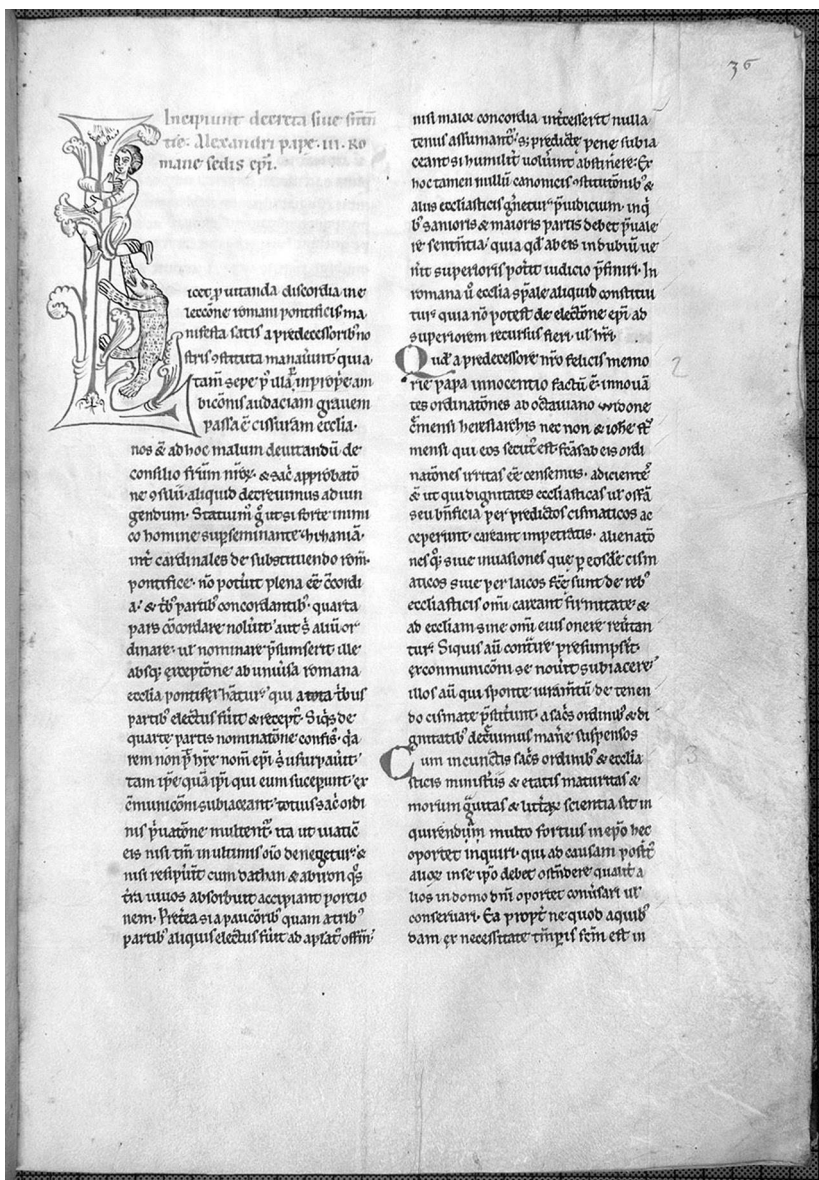 36
Incipiunt decreta siue sentn
tie. Alexandri pape .iii. Ro
mane sedis epi.
icet p uitanda discordia in e
lectione romani pontificis ma
nifesta satis a predecessorib no
stris ɔstituta manauint quia
tam̄ sepe p illa improbe am
bicōnis audaciam grauem
passa ē cissuram ecclia.
nos & ad hoc malum deuitandū de
consilio frūm nrōꝝ. & sac̄ approbatō
ne ɔsilii. aliquid decreuimus adiun
gendum. Statuim g ut si forte inimi
co homine supseminante zizania.
int cardinales de substituendo rom̄.
pontifice. nō potuit plena eē ɔcordi
a. & tb partib concordantib. quarta
pars cōcordare noluit aut s aliū or
dinare. ul nominare psumserit ille
absq exceptōne ab uniuisa romana
ecclia pontifex hatur qui a tota tbus
partib electus fuit & recept. Siqs de
quarte partis nominatōne confis. qa
rem non p hre nom̄ epi s usurpauit
tam ipe quā ipi qui eum sucepunt ex
cm̄unicōni subiaceant. totius sac ordi
nis puatōne multent. ita ut uiatic
eis nisi tm̄ in ultimis oīo denegetur. &
nisi resipuit cum dathan & abiron qs
tra uiuos absorbuit accipiant porcio
nem. Pretea si a paucorib quam a trib
partib aliquis electus fuit ad aplat offm
nisi maior concordia intcesserit nulla
tenus assumant. s; predicte pene subia
ceant si humilit voluint abstinere. Ex
hoc tamen nullū canonicis ɔstitutōnib &
aliis eccliasticis gnetur piudicium. in q
b sanioris & maioris partis debet puale
re sententia. quia qd ab eis in dubiū ue
nit superioris potit iudicio pfiniri. In
romana u ecclia spale aliquid constitui
tur quia nō potest de electōne epi ad
superiorem recursus fieri. ul hri.
Quod a predecessore nro felicis memo
rie papa innocentio factū ē. innouā
tes ordinatōnes ab octauiano widone
cmensi heresiarchis nec non & iohe st
mensi qui eos secut est fcas ab eis ordi
natōnes irritas eē censemus. adiciente
& ut qui dignitates ecclesiasticas ul offa
seu bnficia per predictos cismaticos ac
ceperunt. careant impetratis. alienatō
nes q; siue inuasiones que p eosde cism
aticos siue per laicos fcē sunt de reb
eccliasticis omi careant firmitate. &
ad eccliam sine omi eius onere reutan
tur. Siquis aū contire presumpsit.
excommunicōni se nouit subiacere.
illos aū qui sponte iuramtū de tenen
do cismate pstitunt. a sacs ordinib & di
gnitatib decnimus mane suspensos
Cum in cunctis sacs ordinib & ecclia
sticis ministiis & etatis maturitas &
morum gritas & littaꝝ scientia sit in
quirendum multo fortius in epo hec
oportet inquiri. qui ad causam posit
alioꝝ in se ipo debet ostndere qualit a
lios in domo dni oportet conusari ul
conseruari. Ea propt ne quod a quib
dam ex necessitate tmpis fcm est in
2
3